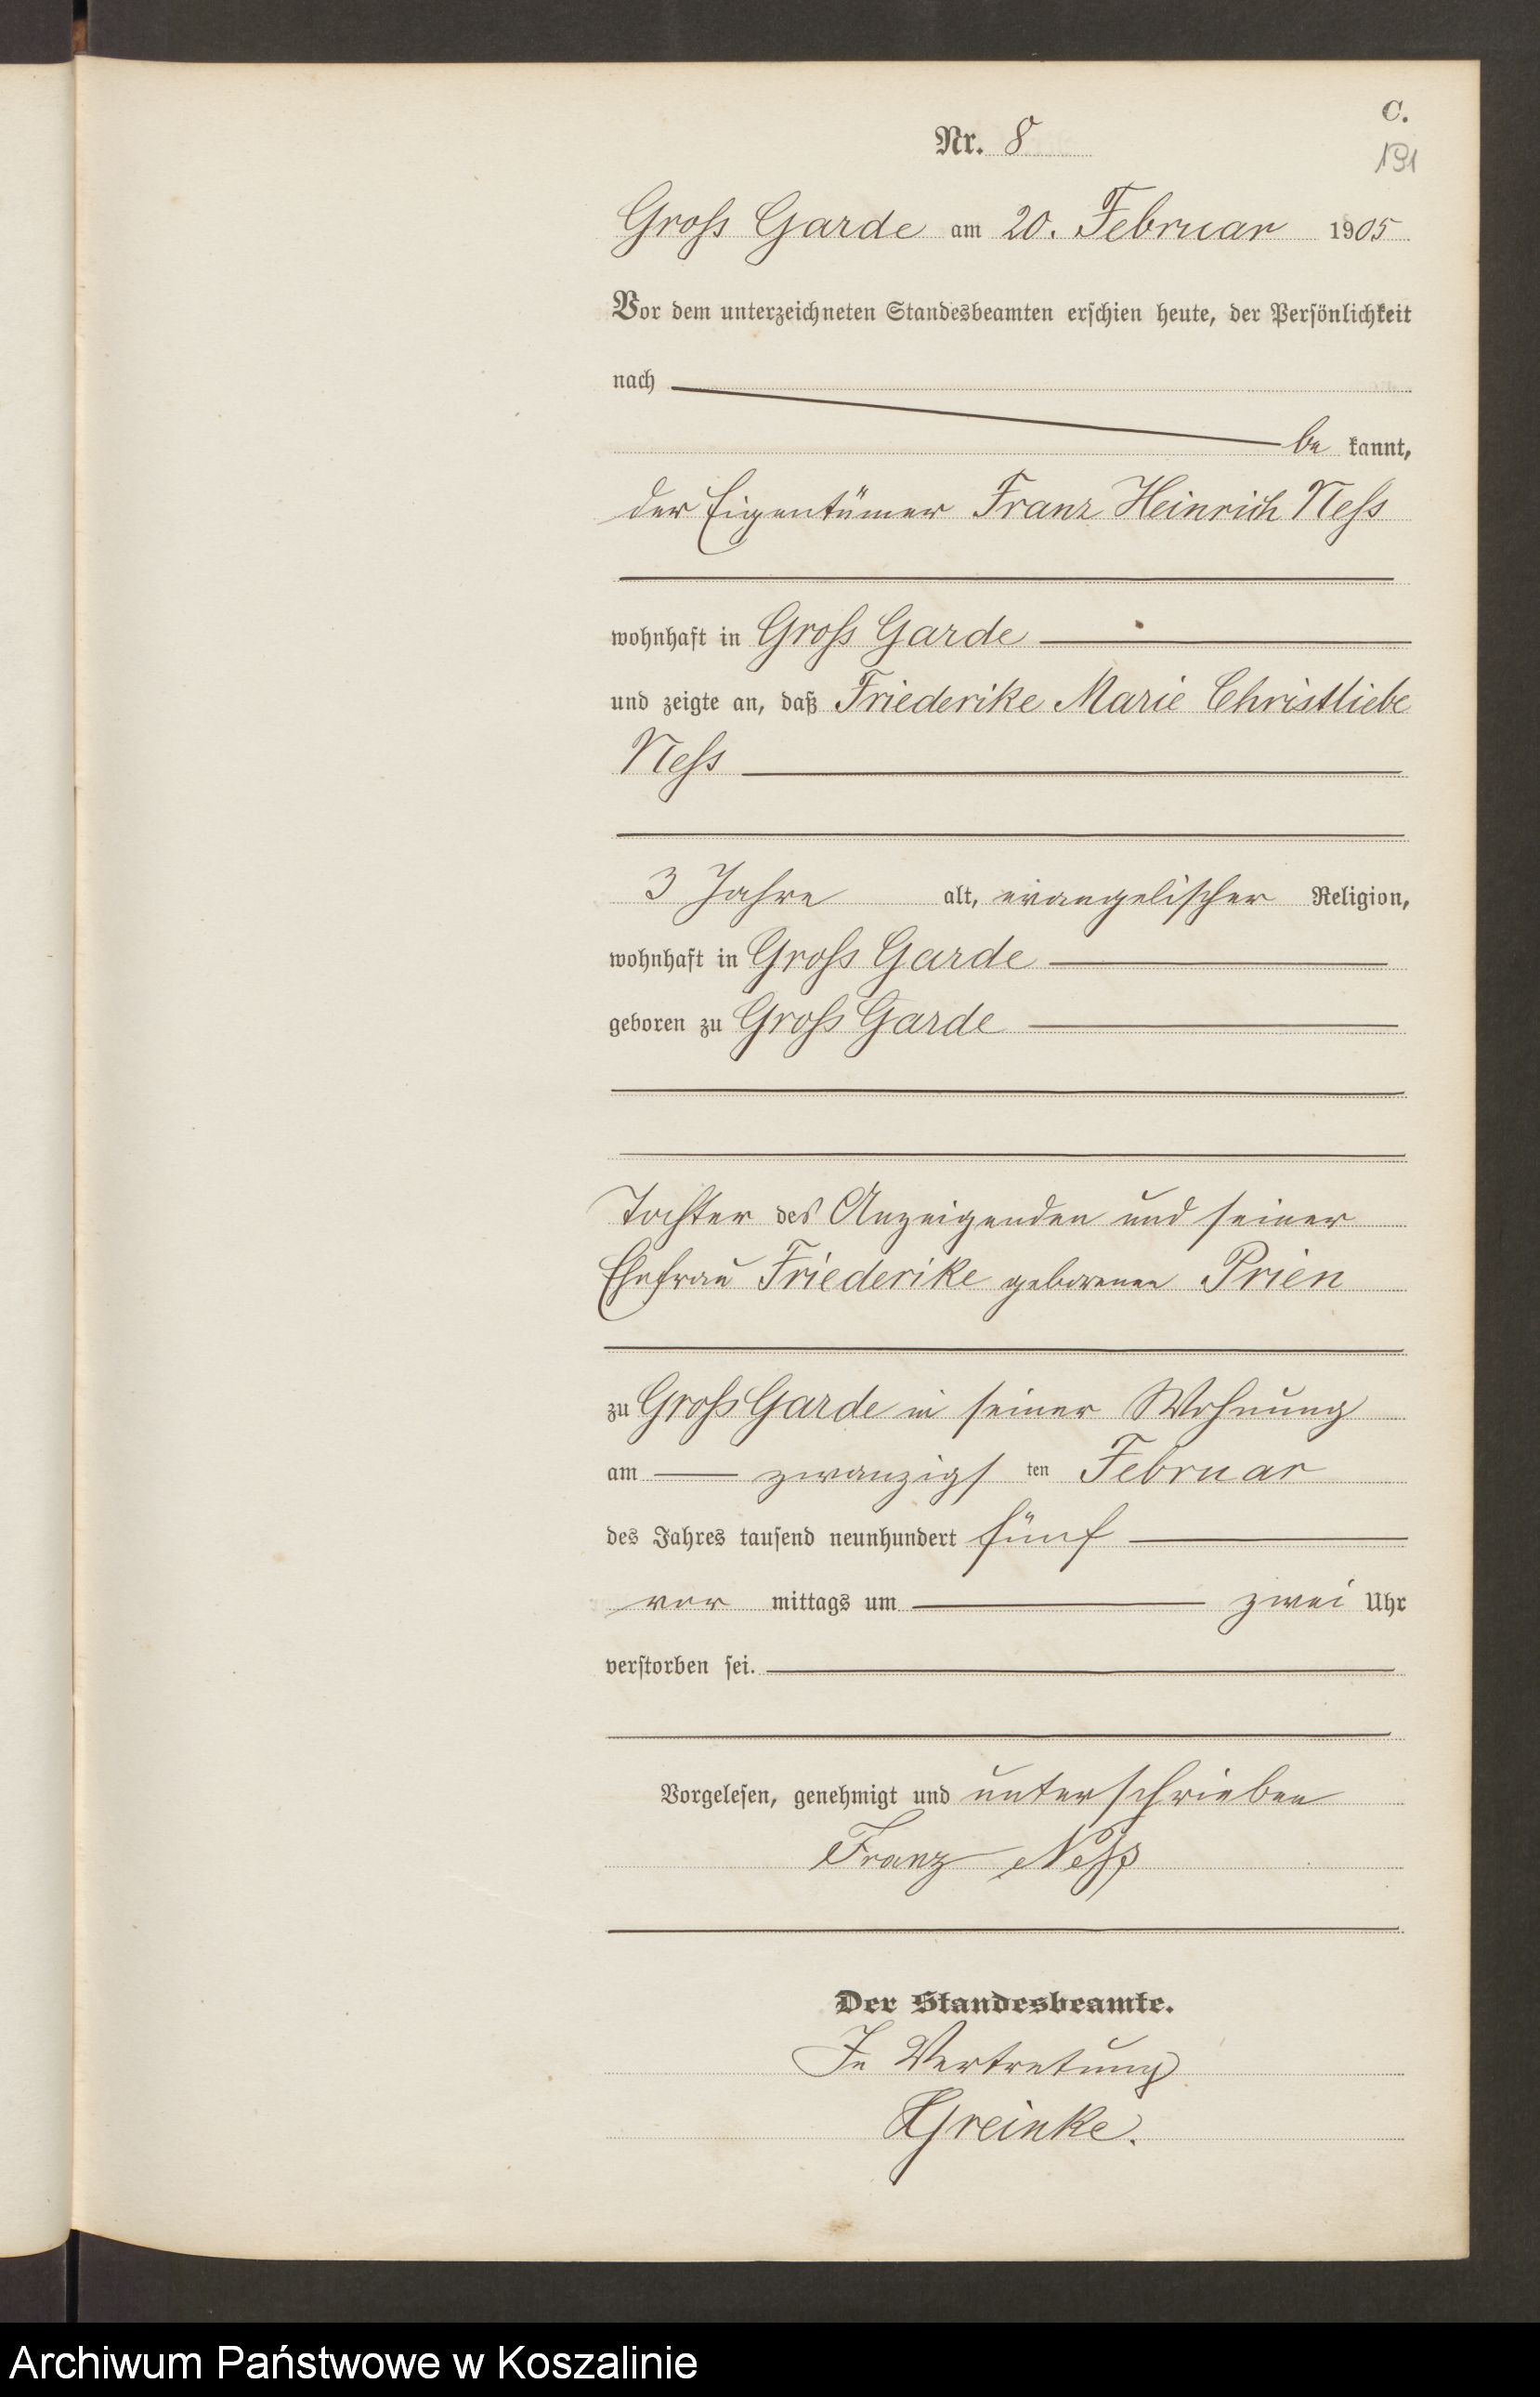 C.
Nr. 8
191
Groß Garde am 20. Februar 1905
Vor dem unterzeichneten Standesbeamten erschien heute, der Persönlichkeit
nach
be kannt,
der Eigentümer Franz Heinrich Neß
wohnhaft in Groß Garde
und zeigte an, daß Friederike Marie Christliebe
Neß
3 Jahre alt, evangelischer Religion,
wohnhaft in Groß Garde
geboren zu Groß Garde
Tochter des Anzeigenden und seiner
Ehefrau Friederike geborenen Prien
zu Groß Garde in seiner Wohnung
am zwanzigsten Februar
des Jahres tausend neunhundert fünf
vor mittags um zwei Uhr
verstorben sei.
Vorgelesen, genehmigt und unterschrieben
Franz Neß
Der Standesbeamte.
In Vertretung
Greinke.
Archiwum Państwowe w Koszalinie